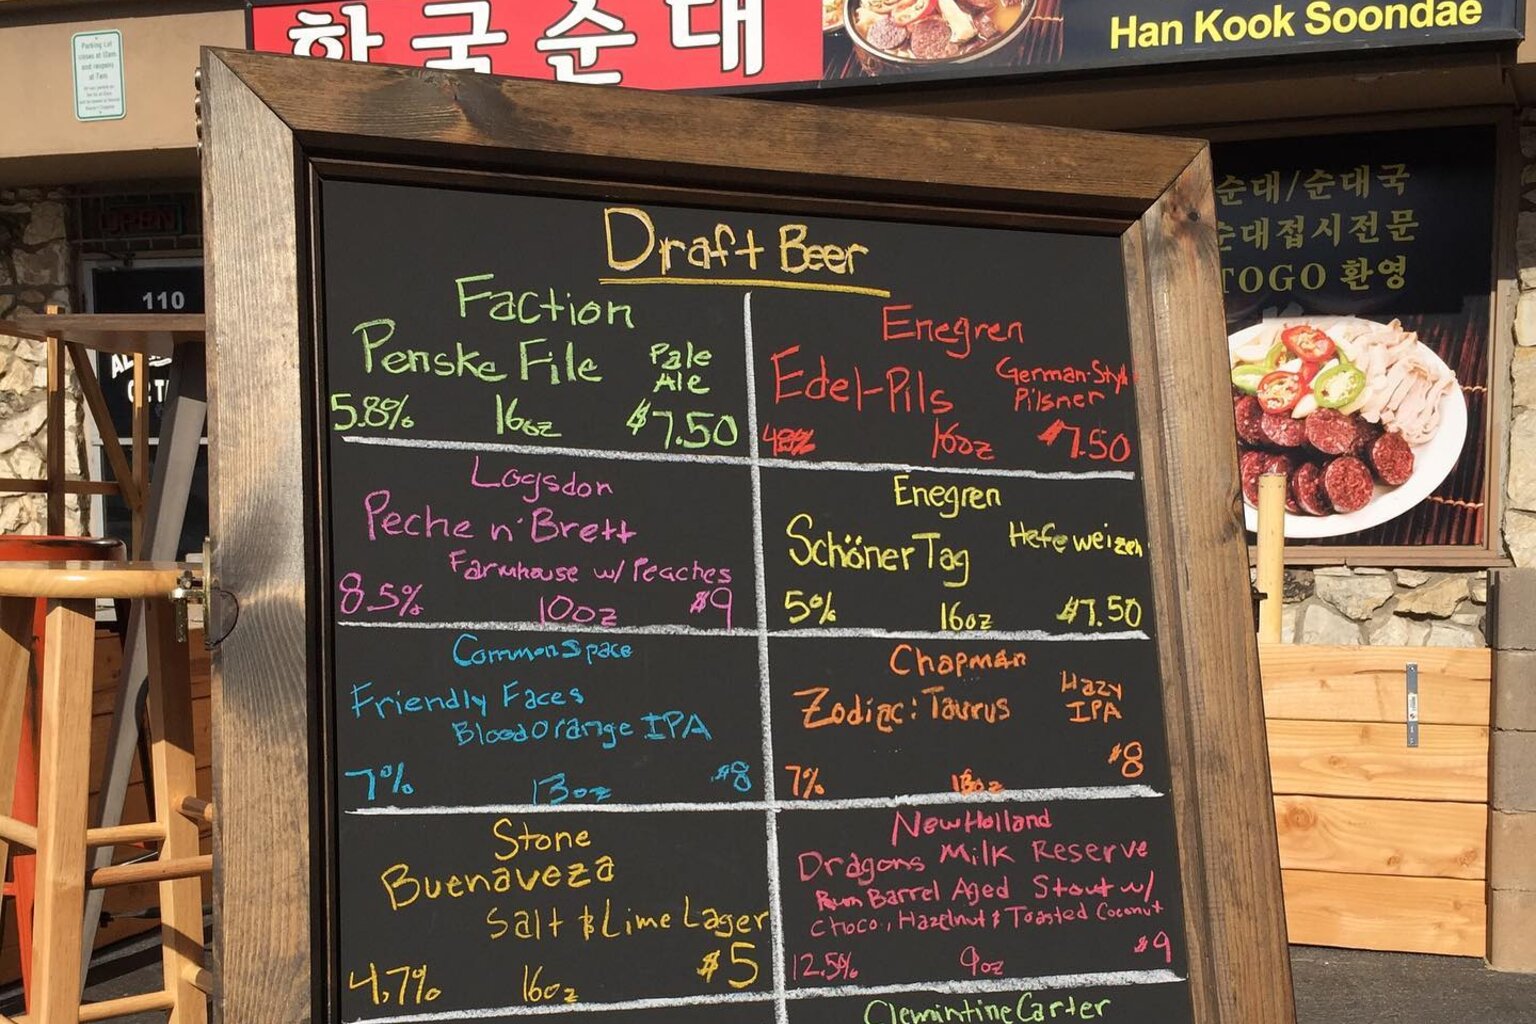 한국순대
Han Kook Soondae
Parking Lot
OPEN
110
순대/순대국
순대접시전문
TOGO 환영
Draft Beer
Faction
Penske File Pale Ale
5.8% 16oz $7.50
Enegren
Edel-Pils German-Style Pilsner
4.8% 16oz $7.50
Logsdon
Peche n' Brett
Farmhouse w/ Peaches
8.5% 10oz $9
Enegren
Schöner Tag Hefeweizen
5% 16oz $7.50
Common Space
Friendly Faces
Blood Orange IPA
7% 13oz $8
Chapman
Zodiac: Taurus Hazy IPA
$8
7% 13oz
Stone
Buenaveza
Salt & Lime Lager
4.7% 16oz $5
New Holland
Dragons Milk Reserve
Rum Barrel Aged Stout w/
Choco, Hazelnut & Toasted Coconut
12.5% 9oz $9
Clemintine Carter